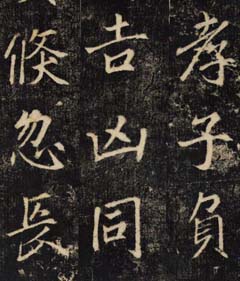 孝子負
吉凶同
倐忽長